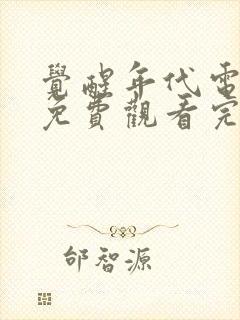 覺醒年代電
免費觀看完
邰智源